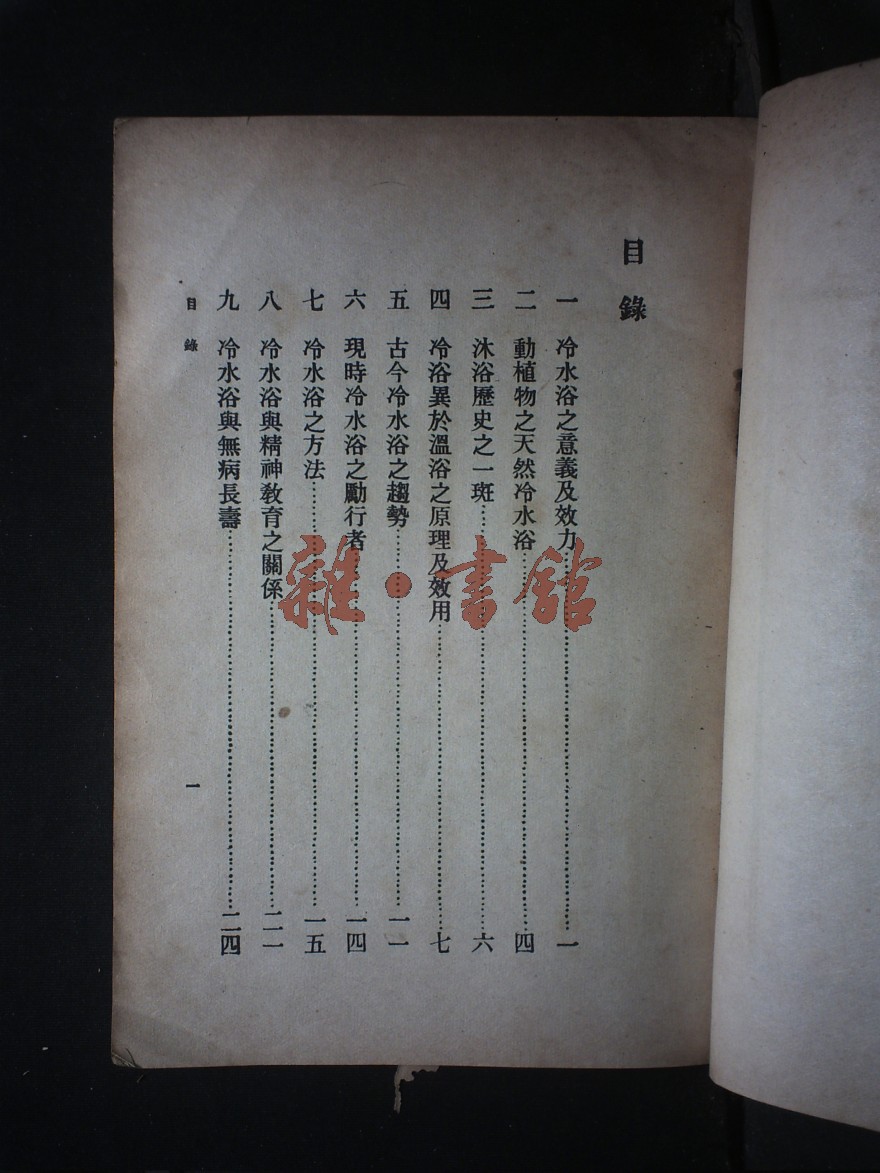 目錄
一 冷水浴之意義及效力……一
二 動植物之天然冷水浴……四
三 沐浴歷史之一斑……六
四 冷浴異於溫浴之原理及效用……七
五 古今冷水浴之趨勢……一一
六 現時冷水浴之勵行者……一四
七 冷水浴之方法……一五
八 冷水浴與精神教育之關係……二一
九 冷水浴與無病長壽……二四
目錄 一
雜·書館